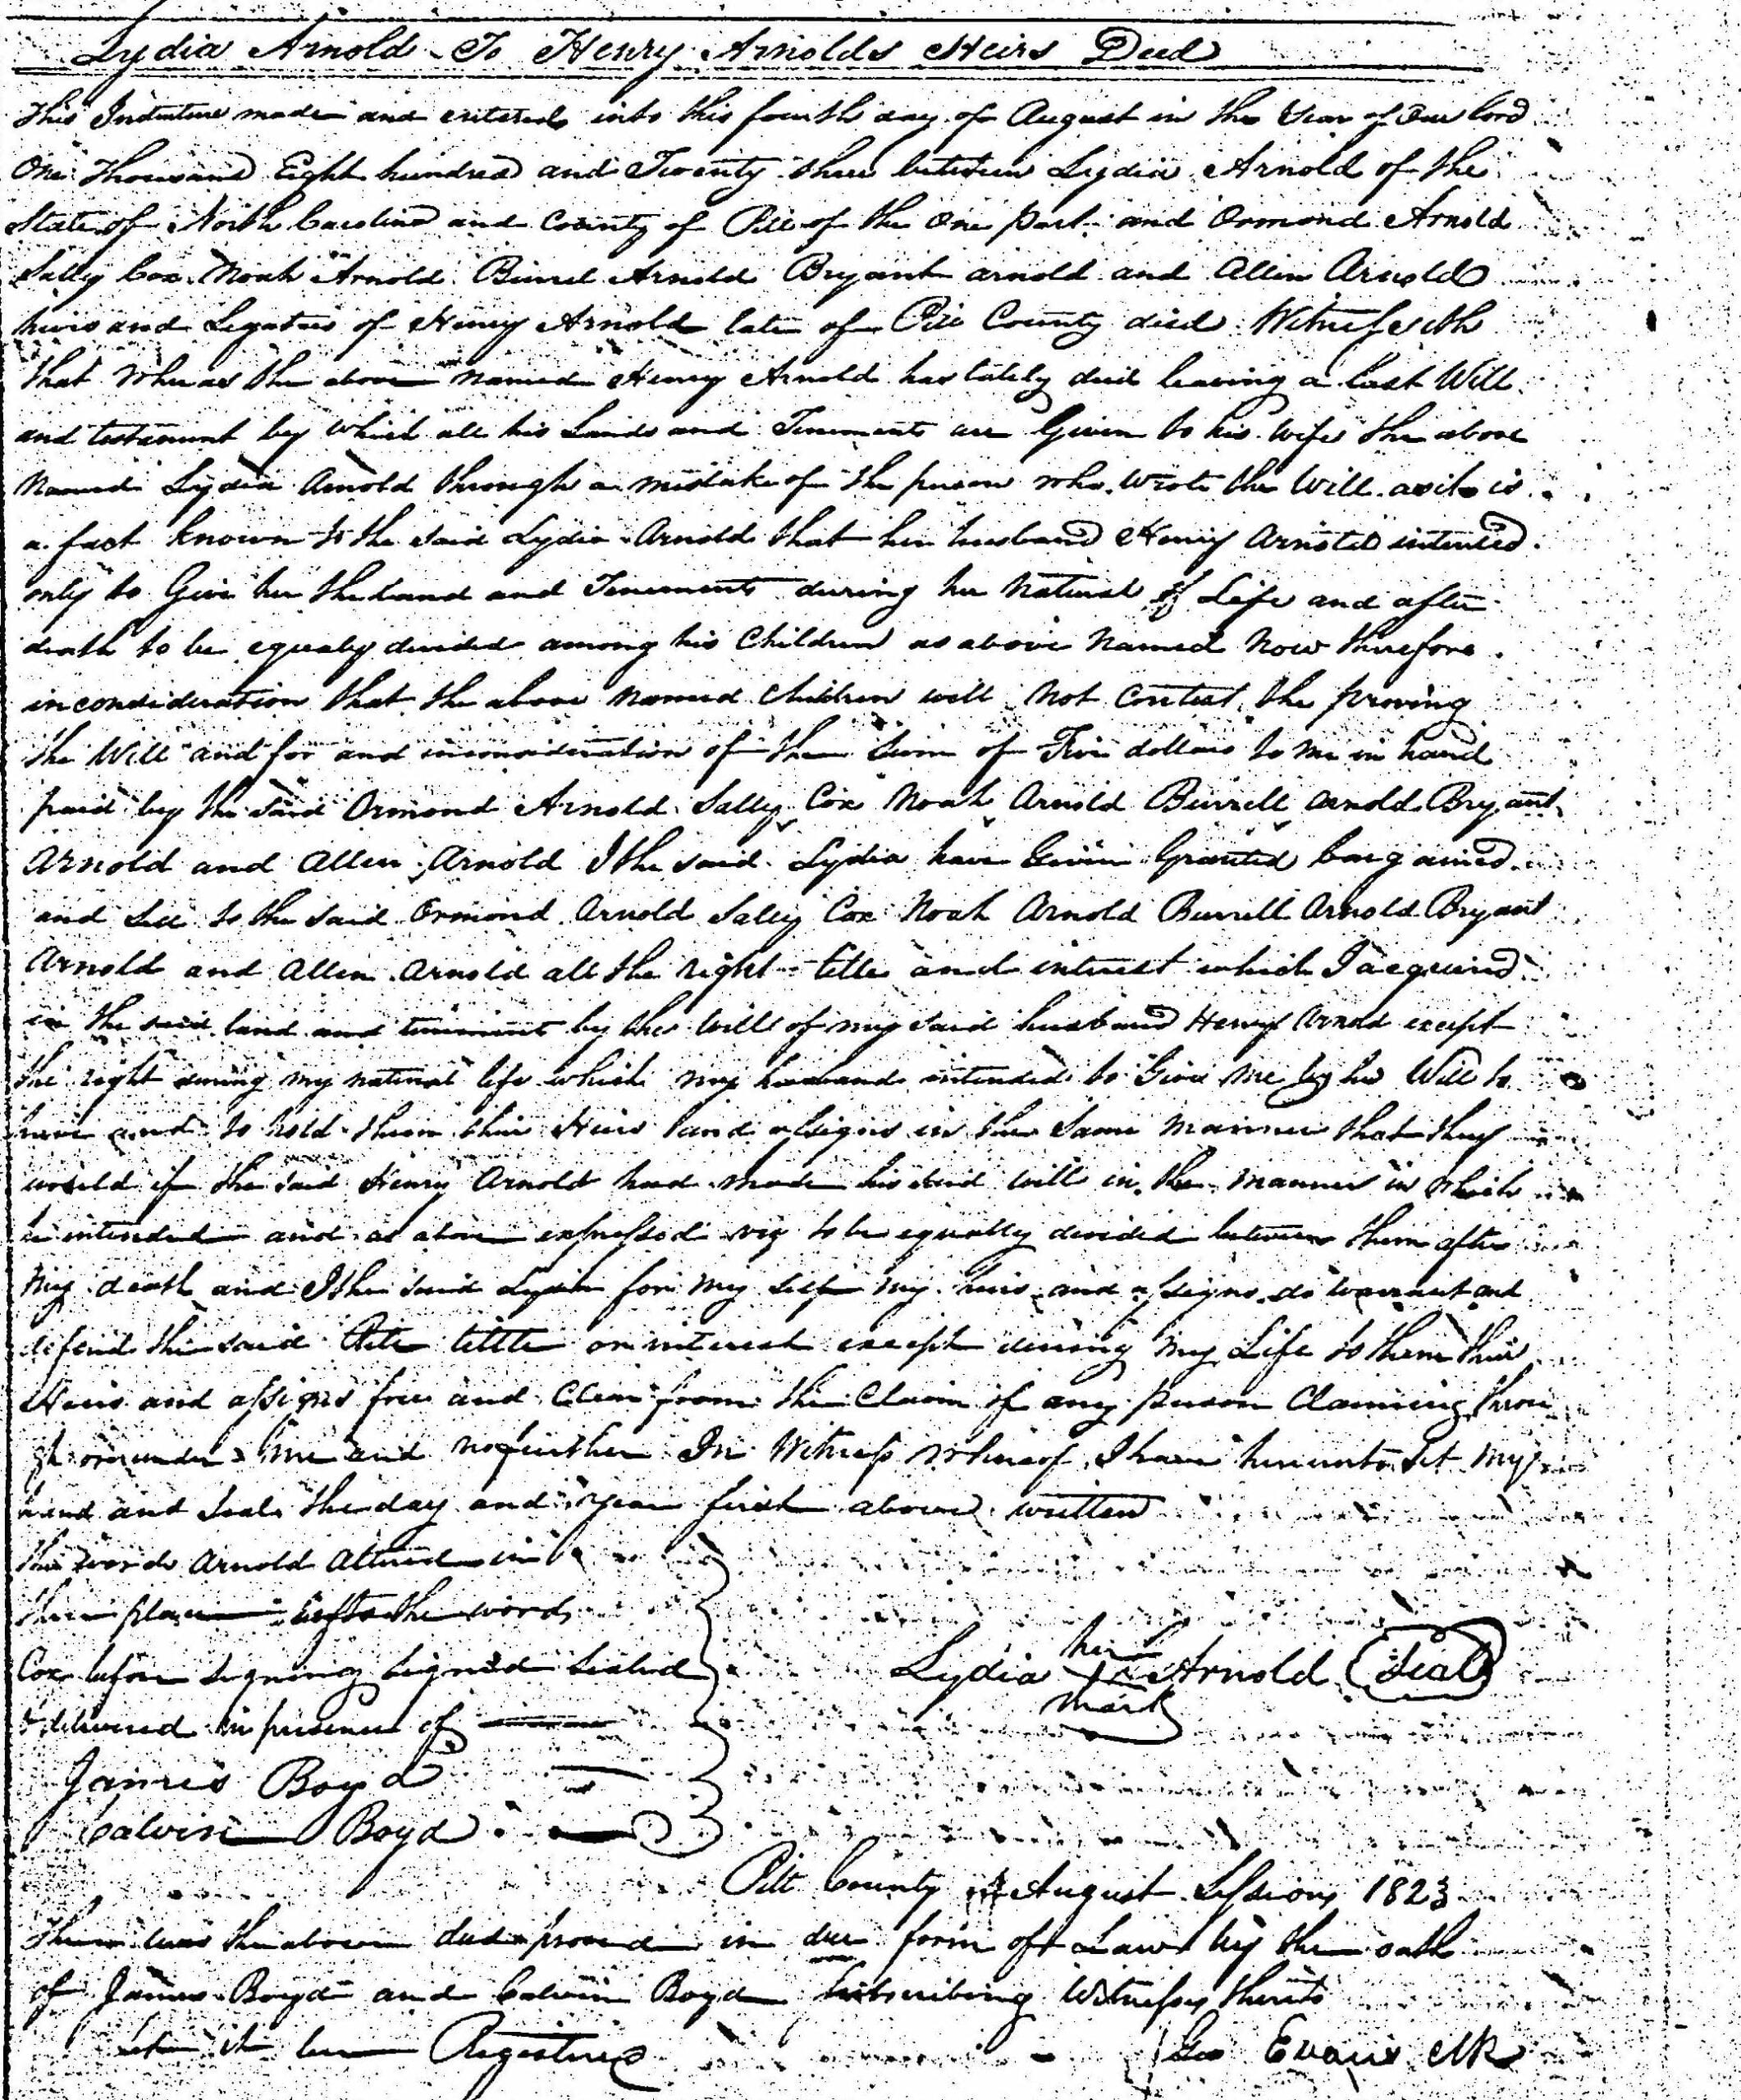 Lydia Arnold To Henry Arnolds Heirs Deed
This Indenture made and entered into this fourth day of August in the Year of Our lord
One Thousand Eight hundred and Twenty three between Lydia Arnold of the
State of North Carolina and County of Pitt of the One part and Ormond Arnold
Sally Cox Noah Arnold Burrel Arnold Bryant arnold and Allen Arnold
heirs and Legatees of Henry Arnold late of Pitt County died Witnesseth
that Whereas the above named Henry Arnold has lately died leaving a last Will
and testament by which all his Lands and Tenements are Given to his wife the above
Named Lydia Arnold through a mistake of the person who wrote the Will as it is
a fact known to the said Lydia Arnold that her husband Henry Arnold intended
only to Give her the land and Tenements during her Natural of Life and after
death to be equaly divided among his Children as above Named Now therefore
in consideration that the above Named Children will Not Contest the proving
the Will and for and in consideration of the Sum of Five dollars to me in hand
paid by the said Ormond Arnold Sally Cox Noah Arnold Burrell Arnold Bryant
Arnold and Allen Arnold I the said Lydia have Given Granted bargained
and Sell to the said Ormond Arnold Sally Cox Noah Arnold Burrell Arnold Bryant
Arnold and Allen Arnold all the right title and interest which I acquired
in the said land and tenement by the Will of my said husband Henry Arnold except
the right during my natural life which my husband intended to Give me by his Will to
have and to hold them their Heirs and assigns in the Same Manner that they
would if the said Henry Arnold had made his said will in the manner in which
he intended and as above expressed viz to be equally divided between them after
My death and I the said Lydia for My Self my heirs and assigns do warrant and
defend the said tittle or interest except during My Life to them their
Heirs and assigns free and Clear from the Claim of any person Claiming throu
gh or under me and no further In Witness whereof I have hereunto Set My
hand and Seal the day and year first above written
the words Arnold Altered in
three place to the word
Cox before signing signed Sealed
& delivered in presence of
Lydia her X mark Arnold (Seal)
James Boyd
Calvin Boyd
Pitt County August Session 1823
Then was the above deed proved in due form of Law by the oath
of James Boyd and Calvin Boyd Subscribing Witnesses thereto
let it be Registered
Geo Evans Clk